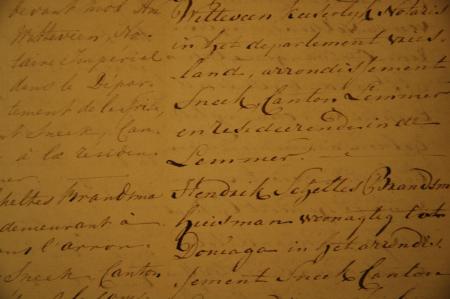 devant moi
Witteveen, No-
taire Imperial
dans le Dépar-
tement de la Fris
Sneek, Can-
à la residen
Brandma
demeurant à
l'arron-
Sneek - Canton
Witteveen keiserlyk Notaris
in het departement vries-
land, arrondissement
Sneek, Canton Lemmer
en resideerende in de
Lemmer.
Hendrik Scheltes Brandsm
huisman woonagtig tot
Doniaga in het arrondis-
sement Sneek Canton